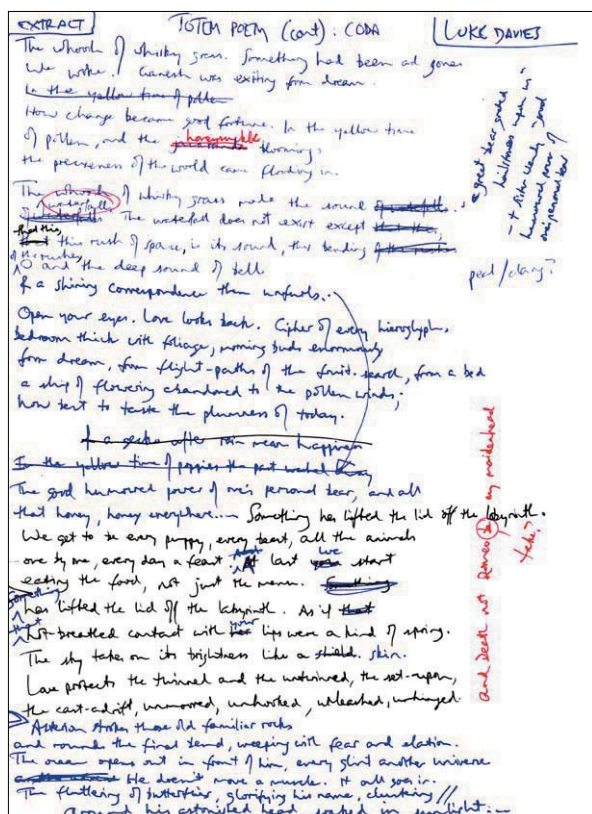 EXTRACT
TOTEM POEM (cont): CODA
LUKE DAVIES
The whoosh of whisky grass. Something had been and gone.
We woke. Ganesh was exiting from dream.
In the yellow time of pollen
How change became good fortune. In the yellow time
of pollen, and the honeymyrtle blooming,
the preciseness of the world came flooding in.
The whoosh of whisky grass made the sound of waterfall.
waterfall
The waterfall does not exist except that the
that this,
this rush of space, is its sound, this bending of the rushes
of the rushes
and the deep sound of bell
& a shining correspondence then unfurls..
Open your eyes. Love looks back. Cipher of every hieroglyph,
bedroom thick with foliage, morning buds enormously
from dream, from flight-paths of the fruit-search, from a bed
a ship of flowering abandoned to the pollen winds;
how best to taste the plumness of today.
& a gecko after rain mean happiness
In the yellow time of poppies the past washed away
The good humoured power of one's personal bear, and all
that honey, honey everywhere.... Something has lifted the lid off the labyrinth.
We get to be every puppy, every beast, all the animals
one by one, every day a feast. And At last we you start
eating the food, not just the menu. Something
Something has lifted the lid off the labyrinth. As if that
that hot-breathed contact with her your lips were a kind of spring.
The sky takes on its brightness like a shield. skin.
Love protects the twinned and the untwinned, the set-upon,
the cast-adrift, unmoored, unhooked, unleashed, unhinged.
Asterion strokes those old familiar rocks
and rounds the final bend, weeping with fear and elation.
The ocean opens out in front of him, every glint another universe
He doesn't move a muscle. It all goes in.
The fluttering of butterflies, glorifying his name, clunking//
around his astonished head soaked in sunlight...
"a great bear sacked
upon us"
good
humoured power of
one's personal bear
peal/clang?
and Death not Romeo is my maidenhead
take?